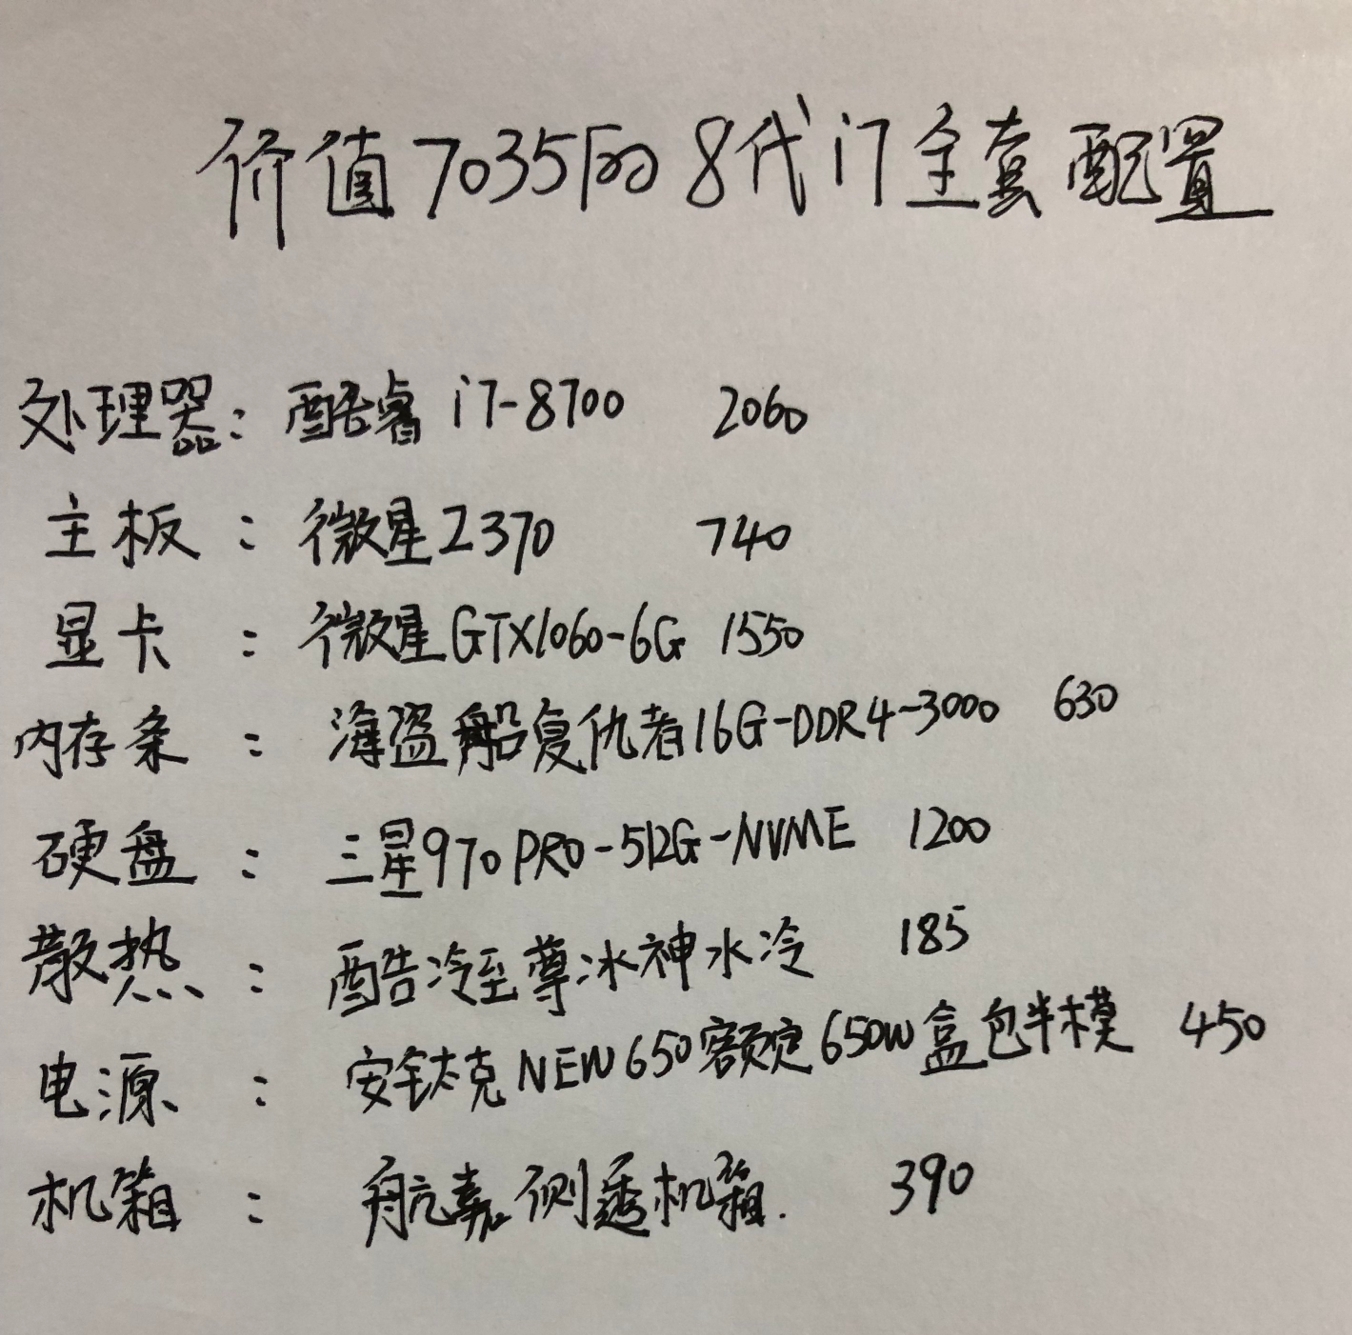 价值7035的8代i7全套配置
处理器: 酷睿 i7-8700 2060
主板: 微星Z370 740
显卡: 微星GTX1060-6G 1550
内存条: 海盗船复仇者16G-DDR4-3000 630
硬盘: 三星970PRO-512G-NVME 1200
散热: 酷冷至尊冰神水冷 185
电源: 安钛克NEW650额定650W盒包半模 450
机箱: 航嘉侧透机箱. 390